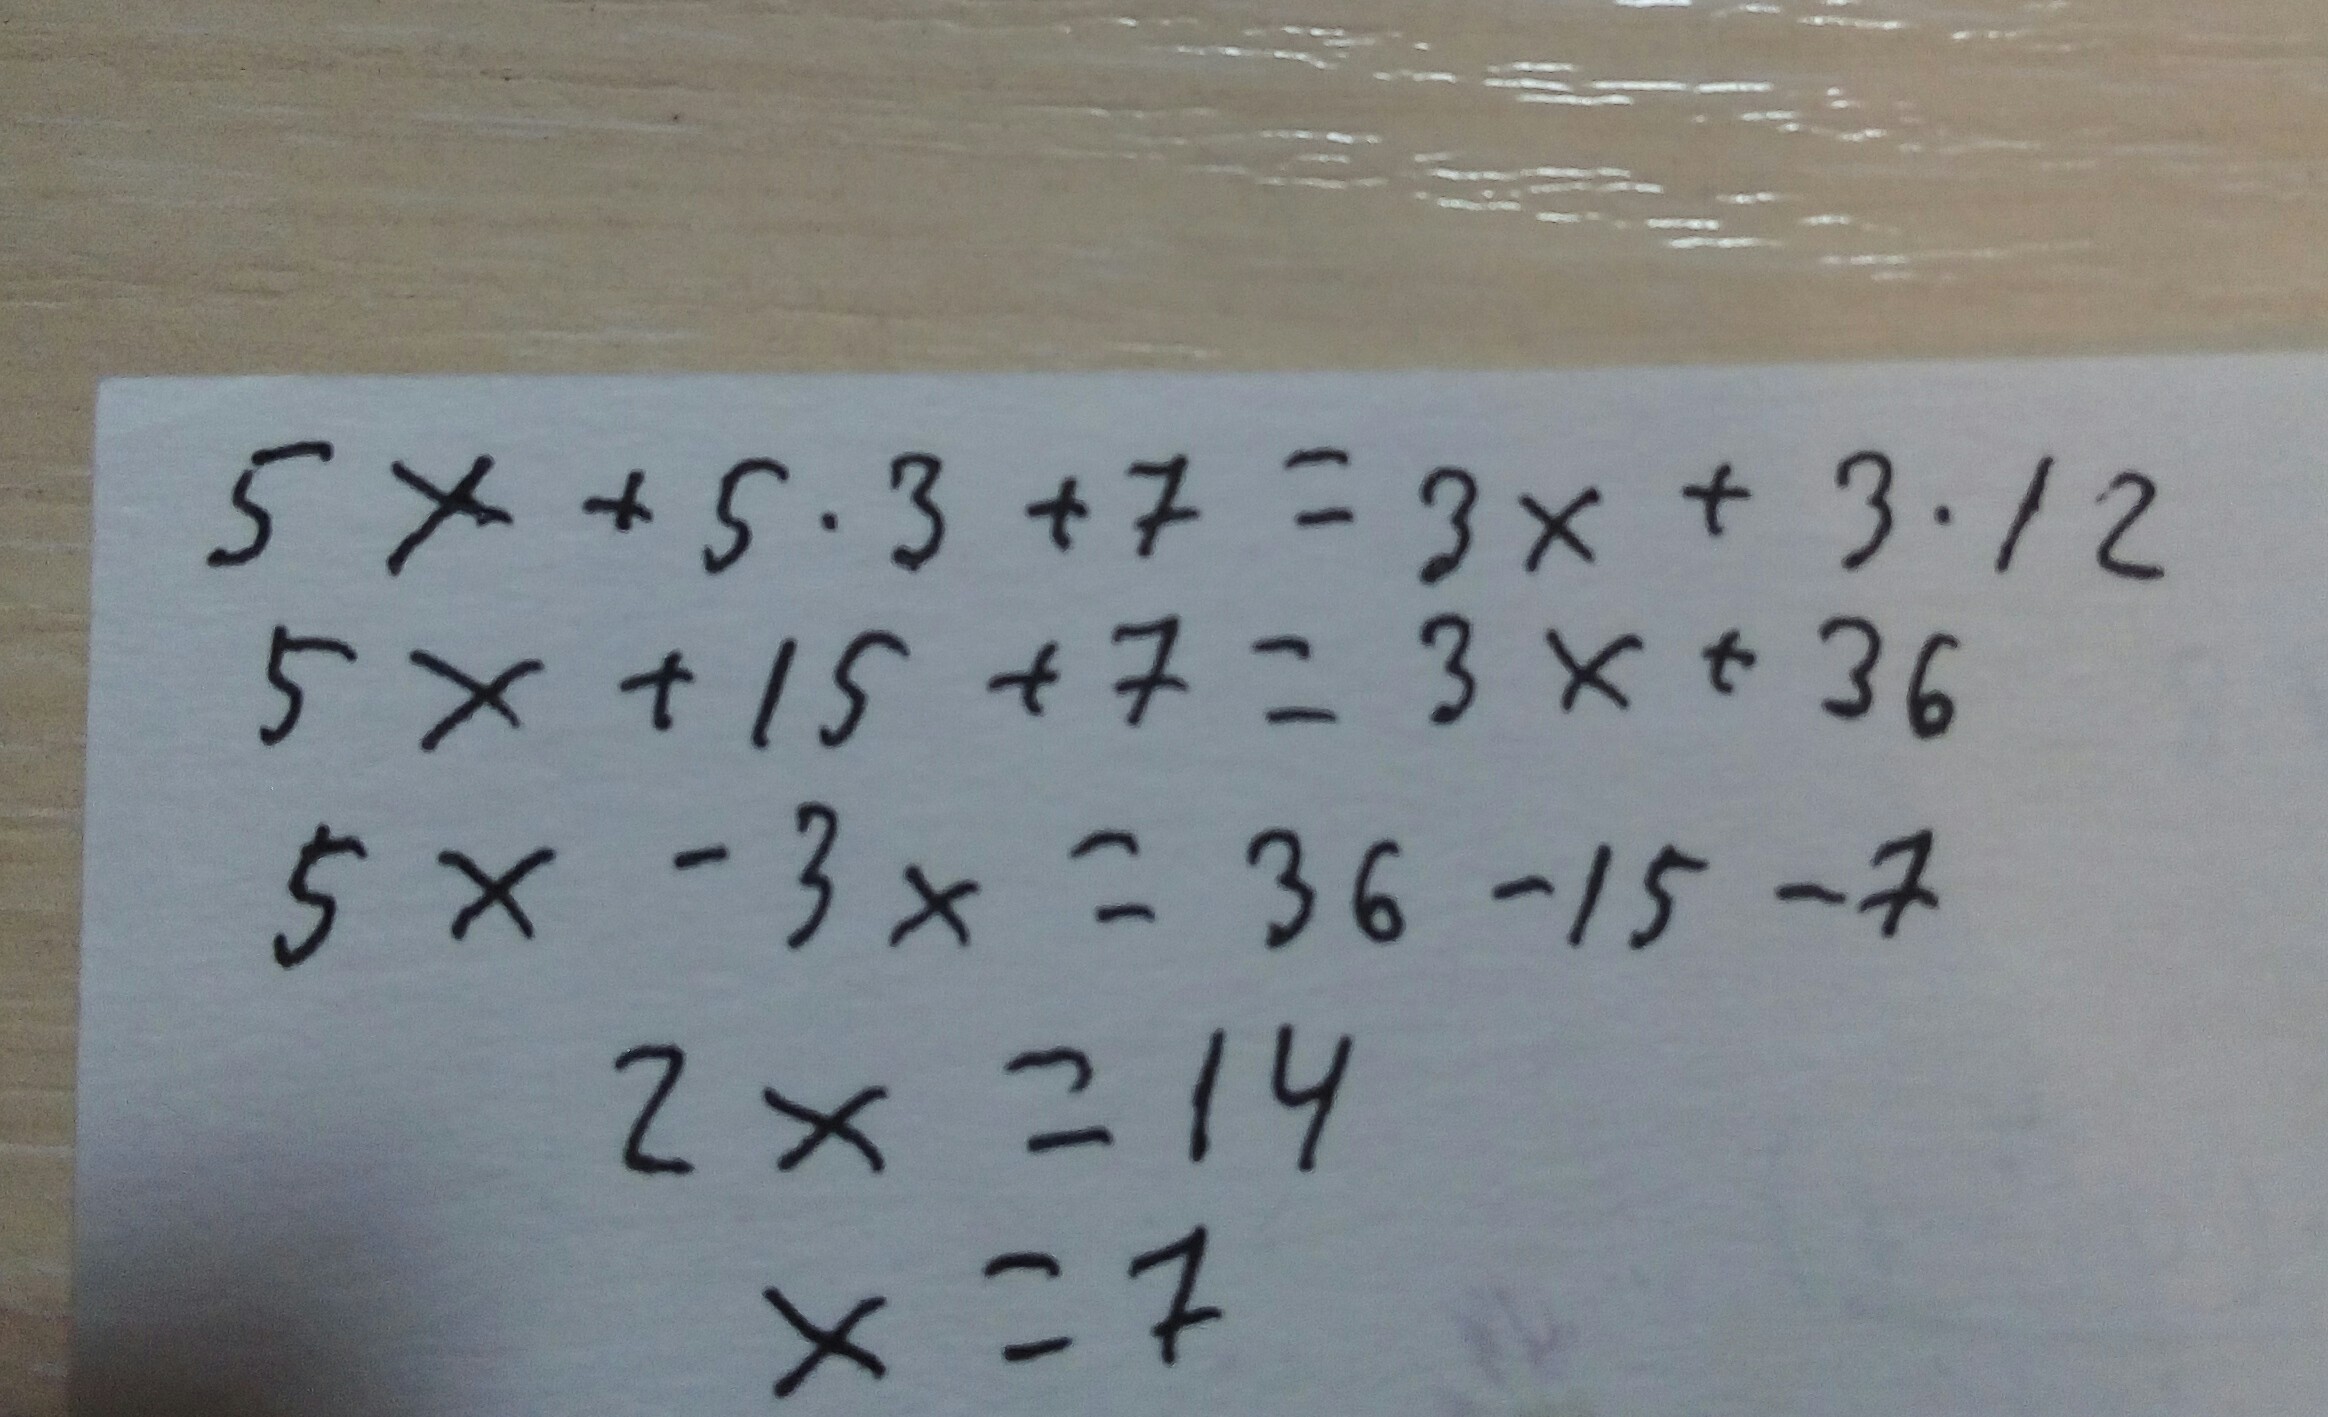 5x + 5 · 3 + 7 = 3x + 3 · 12
5x + 15 + 7 = 3x + 36
5x - 3x = 36 - 15 - 7
2x = 14
x = 7